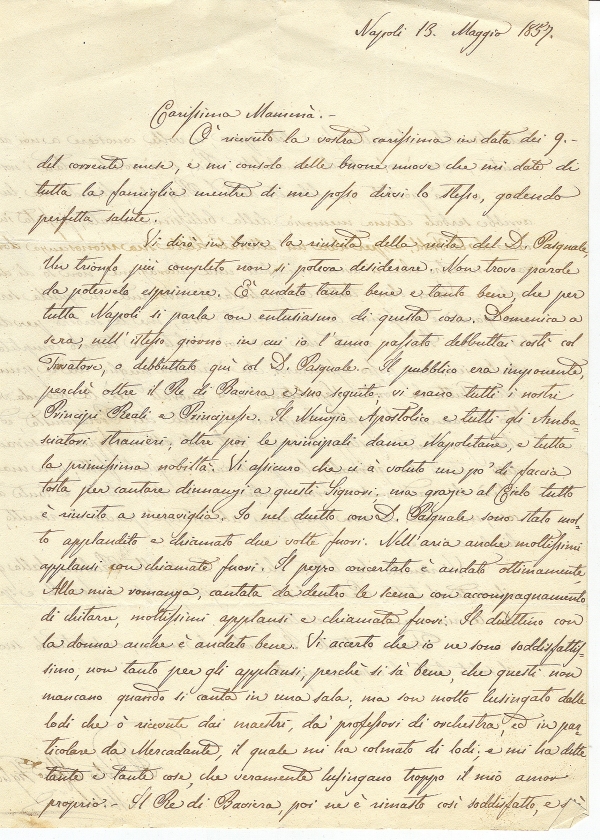 Napoli 13. Maggio 1857.
Carissima Mammà. -
Ò ricevuto la vostra carissima in data dei 9.-
del corrente mese, e mi consolo delle buone nuove che mi date di
tutta la famiglia mentre di me posso dirvi lo stesso, godendo
perfetta salute.
Vi dirò in breve la riuscita della recita del D. Pasquale,
Un trionfo più completo non si poteva desiderare. Non trovo parole
da potervelo esprimere. È andato tanto bene e tanto bene, che per
tutta Napoli si parla con entusiasmo di questa cosa. Domenica a
sera, nell'istesso giorno in cui io l'anno passato debbuttai costì col
Trovatore, ò debbuttato quì col D. Pasquale. - Il pubblico era imponente,
perchè oltre il Re di Baviera e suo seguito, vi erano tutti i nostri
Principi Reali e Principesse. Il Nunzio Apostolico e tutti gli Amba-
sciatori stranieri, oltre poi le principali dame Napoletane, e tutta
la primissima nobiltà. Vi assicuro che ci à voluto un po' di faccia
tosta per cantare dinnanzi a questi Signori, ma grazie al Cielo tutto
è riuscito a meraviglia. Io nel duetto con D. Pasquale sono stato mol-
to applaudito e chiamato due volte fuori. Nell'aria anche moltissimi
applausi con chiamate fuori. Il pezzo concertato è andato ottimamente
Alla mia romanza, cantata da dentro le scena con accompagnamento
di chitarre, moltissimi applausi e chiamata fuori. Il duettino con
la donna anche è andato bene. Vi accerto che io ne sono soddisfattis-
simo, non tanto per gli applausi, perchè si sà bene, che questi non
mancano quando si canta in una sala, ma son molto lusingato dalle
lodi che ò ricevute dai maestri, da' professori di orchestra, ed in par-
ticolare da Mercadante, il quale mi ha colmato di lodi, e mi ha dette
tante e tante cose, che veramente lusingano troppo il mio amor
proprio. - Il Re di Baviera, poi ne è rimasto così soddisfatto, e s'è